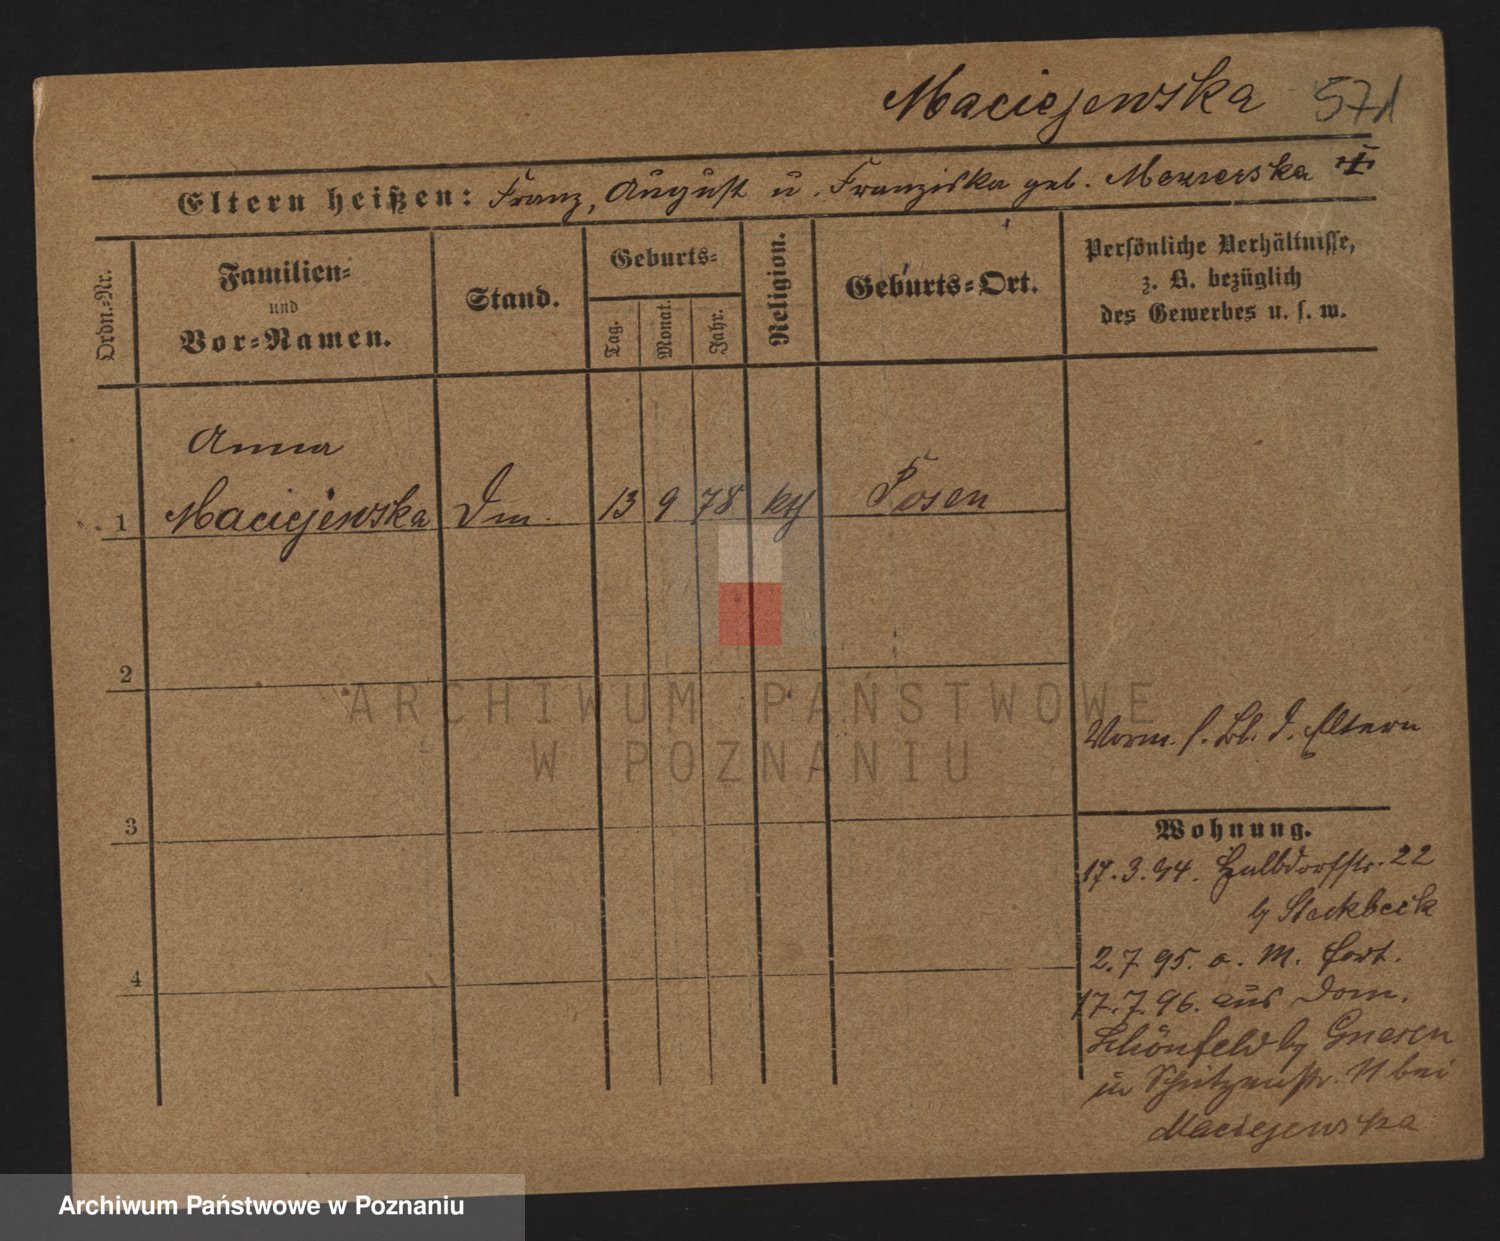 Maciejewska 571
Eltern heißen: Franz, August u. Franziska geb.
Ordn.-Nr.
Familien-
und
Vor-Namen.
Stand.
Geburts-
Tag.
Monat.
Jahr.
Religion.
Geburts-Ort.
Persönliche Verhältnisse,
z. B. bezüglich
des Gewerbes u. s. w.
Anna
1 Maciejewska Dm. 13 9 78 kth Posen
2
3
4
Vorm. s. Bl. d. Eltern
Wohnung.
17.3.94. Halbdorfstr. 22
b/ Steckbeck
2.7 95. a. M. fort.
17.7.96. aus Dom.
Schönfeld b/ Gnesen
in Schützenstr. 11 bei
Maciejewska
ARCHIWUM PAŃSTWOWE
W POZNANIU
Archiwum Państwowe w Poznaniu